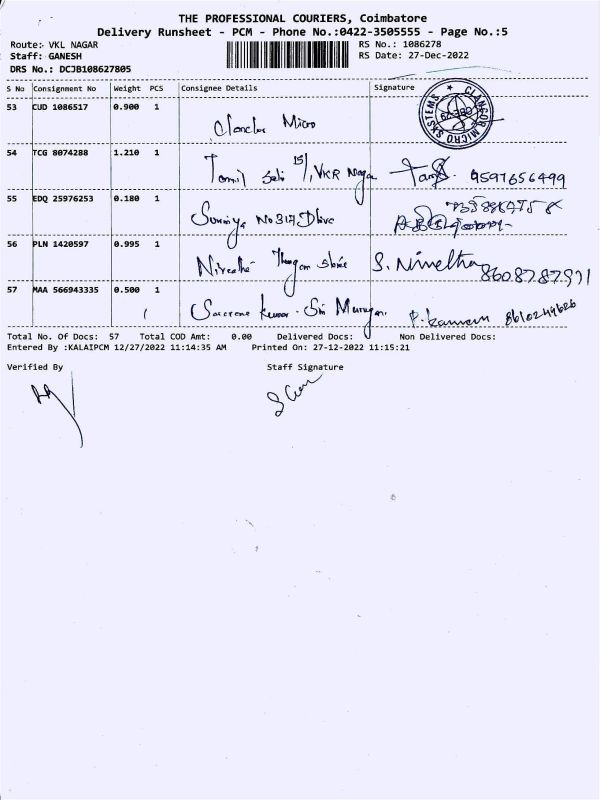 THE PROFESSIONAL COURIERS, Coimbatore
Delivery Runsheet - PCM - Phone No.:0422-3505555 - Page No.:5
Route: VKL NAGAR RS No.: 1086278
Staff: GANESH RS Date: 27-Dec-2022
DRS No.: DCJB108627805
S No Consignment No Weight PCS Consignee Details Signature
53 CUD 1086517 0.900 1 Micro CLANGOR MICRO SYSTEMS
54 TCG 8074288 1.210 1 Tamil 15/1, VKR Nagar 9597656499
55 EDQ 25976253 0.180 1 Sunniya No 317
56 PLN 1420597 0.995 1 S. Nivetha 8608787971
57 MAA 566943335 0.500 1 Kumar - Sri Murugan 8610249626
Total No. Of Docs: 57 Total COD Amt: 0.00 Delivered Docs: Non Delivered Docs:
Entered By :KALAIPCM 12/27/2022 11:14:35 AM Printed On: 27-12-2022 11:15:21
Verified By Staff Signature